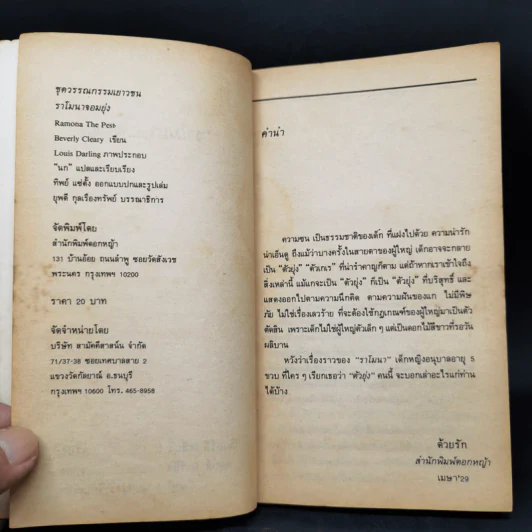 ชุดวรรณกรรมเยาวชน
ราโมนาจอมยุ่ง
Ramona The Pest
Beverly Cleary เขียน
Louis Darling ภาพประกอบ
"นก" แปลและเรียบเรียง
ทิพย์ แซ่ตั้ง ออกแบบปกและรูปเล่ม
ยุพดี กูลเรืองทรัพย์ บรรณาธิการ
จัดพิมพ์โดย
สำนักพิมพ์ดอกหญ้า
131 บ้านอ้อย ถนนลำพู ซอยวัดสังเวช
พระนคร กรุงเทพฯ 10200
ราคา 20 บาท
จัดจำหน่ายโดย
บริษัท สามัคคีสาสน์น จำกัด
71/37-38 ซอยเทศบาลสาย 2
แขวงวัดกัลยาณ์ อ.ธนบุรี
กรุงเทพฯ 10600 โทร. 465-8958
คำนำ
ความซน เป็นธรรมชาติของเด็ก ที่แฝงไปด้วย ความน่ารัก
น่าเอ็นดู ถึงแม้ว่าบางครั้งในสายตาของผู้ใหญ่ เด็กอาจจะกลาย
เป็น "ตัวยุ่ง" "ตัวเกเร" ที่น่ารำคาญก็ตาม แต่ถ้าหากเราเข้าใจถึง
สิ่งเหล่านี้ แม้แกจะเป็น "ตัวยุ่ง" ก็เป็น "ตัวยุ่ง" ที่บริสุทธิ์ และ
แสดงออกไปตามความนึกคิด ตามความฝันของแก ไม่มีพิษ
ภัย ไม่ใช่เรื่องเลวร้าย ที่จะต้องใช้กฎเกณฑ์ของผู้ใหญ่มาเป็นตัว
ตัดสิน เพราะเด็กไม่ใช่ผู้ใหญ่ตัวเล็ก ๆ แต่เป็นดอกไม้สีขาวที่รอวัน
ผลิบาน
หวังว่าเรื่องราวของ "ราโมนา" เด็กหญิงอนุบาลอายุ 5
ขวบ ที่ใคร ๆ เรียกเธอว่า "ตัวยุ่ง" คนนี้ จะบอกเล่าอะไรแก่ท่าน
ได้บ้าง
ด้วยรัก
สำนักพิมพ์ดอกหญ้า
เมษา'29